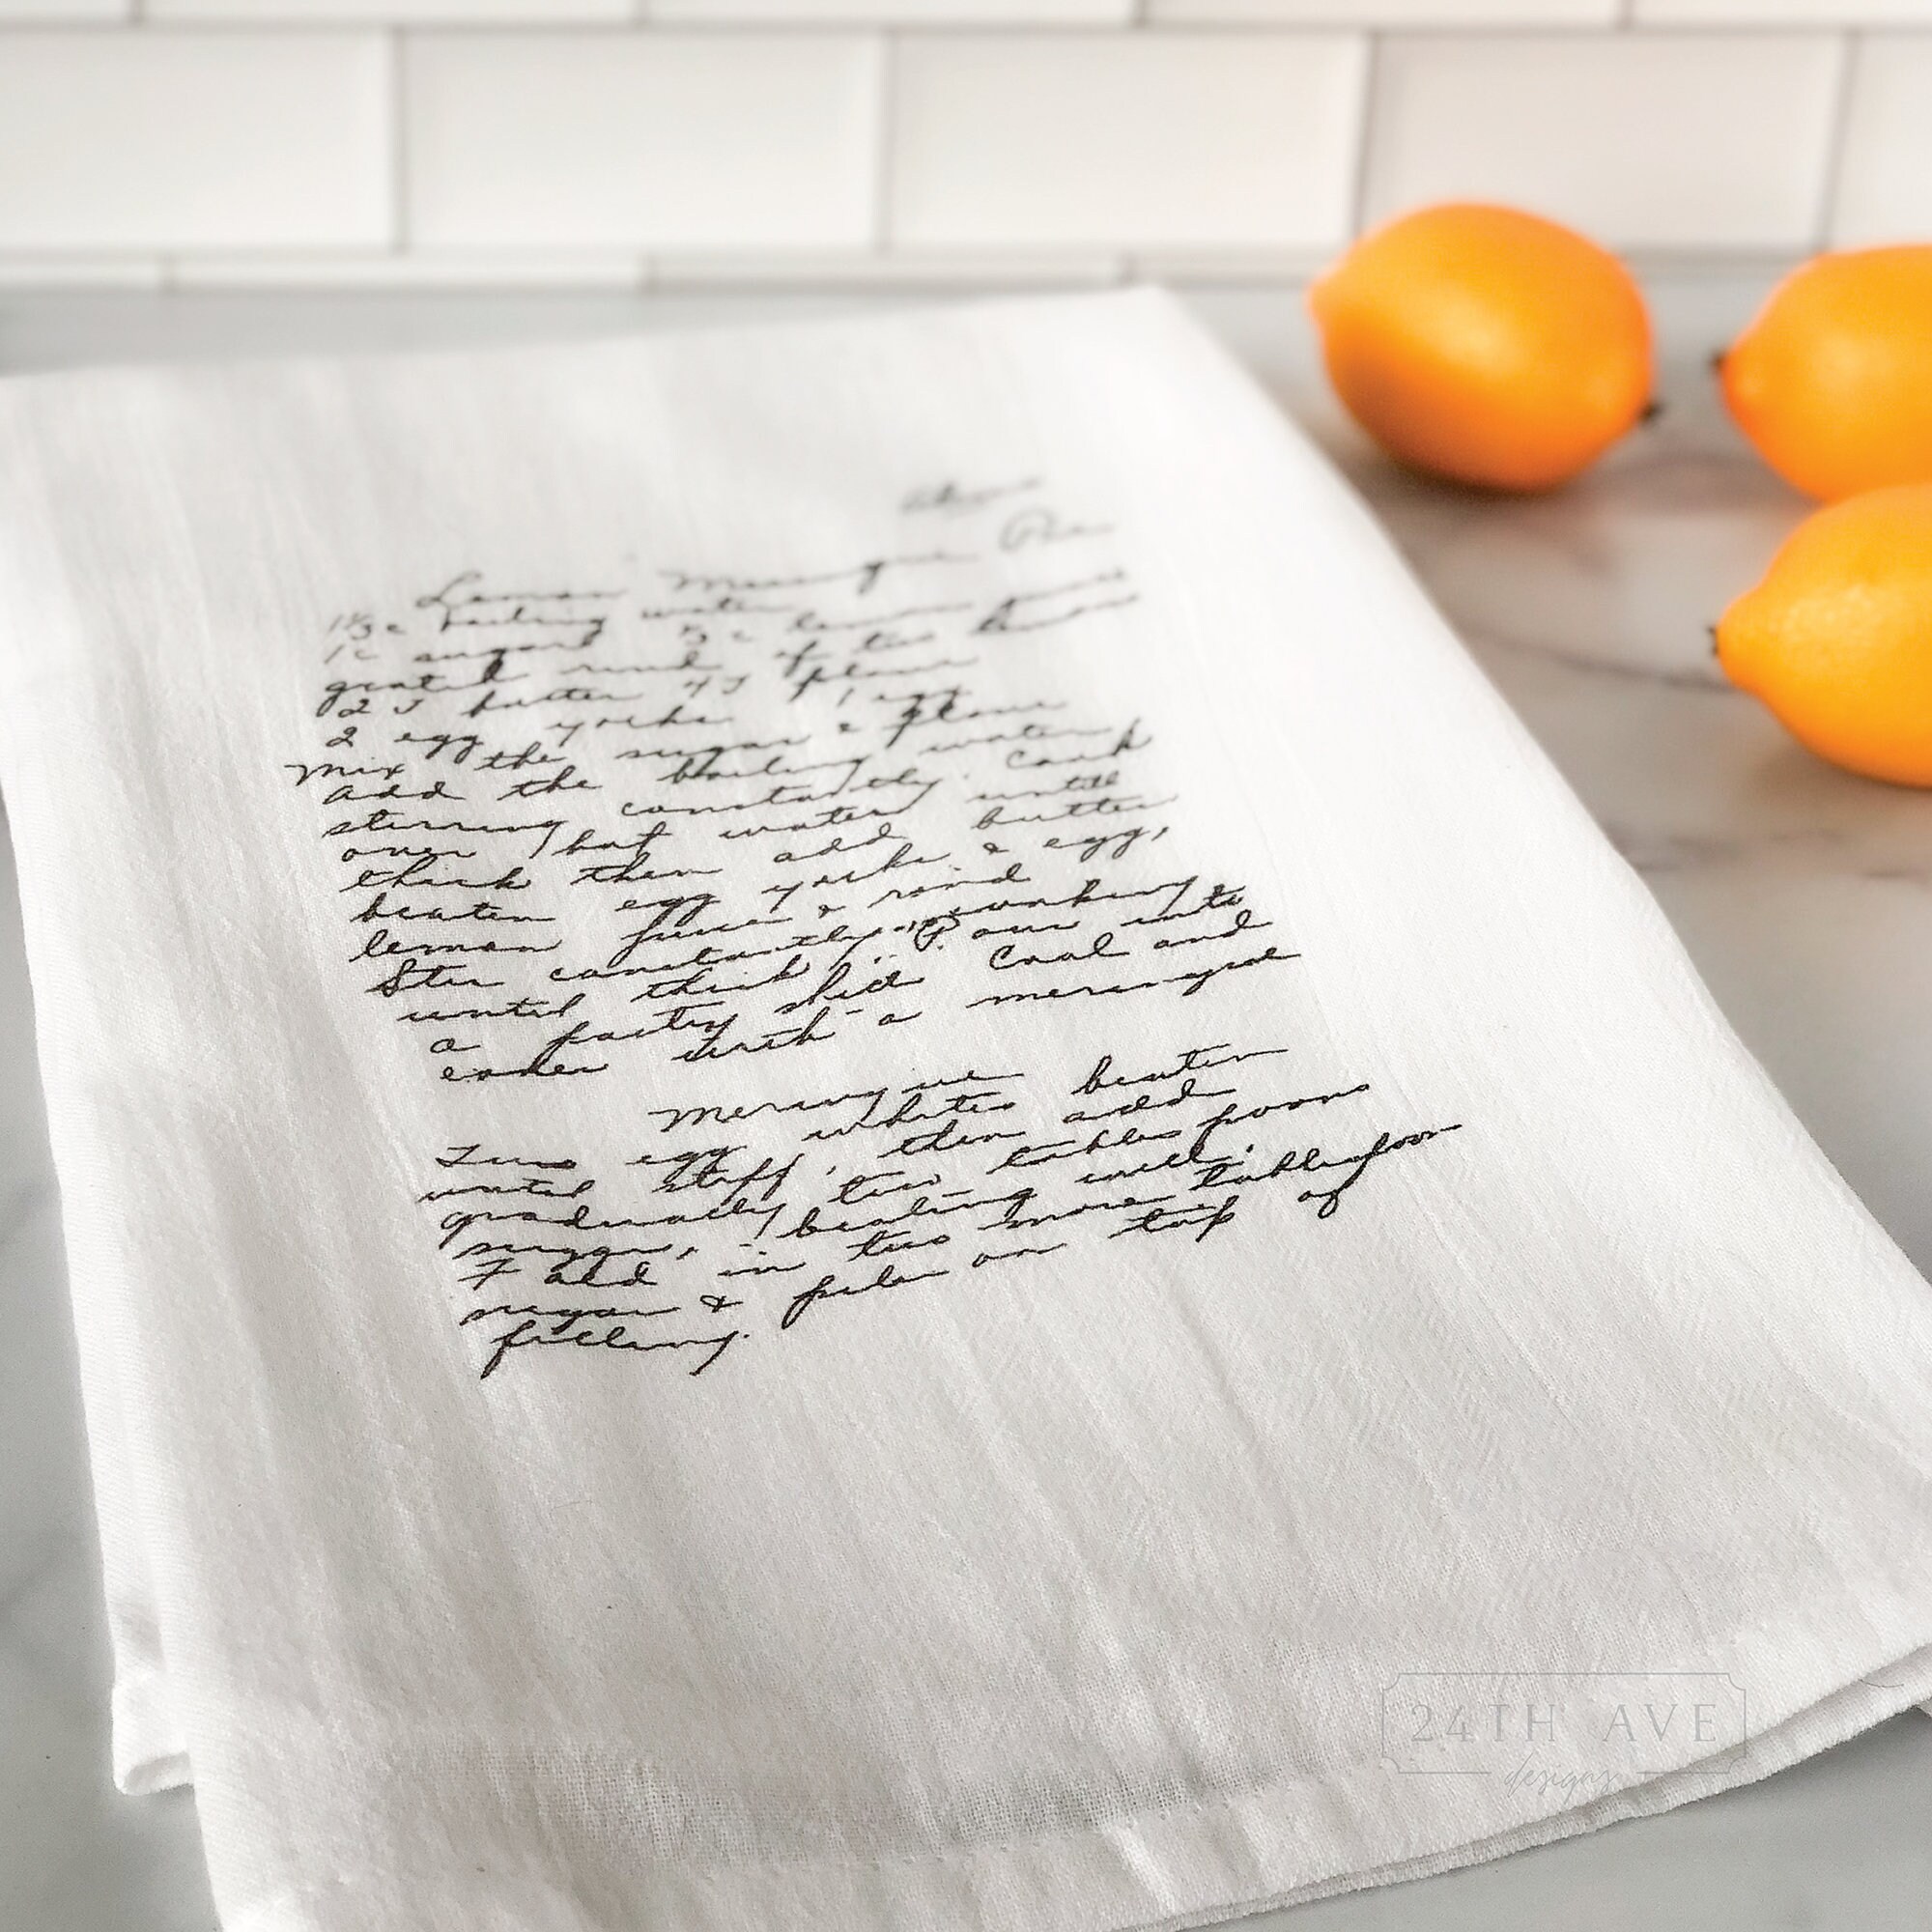 Lemon Meringue Pie
1 1/3 c boiling water
1 c sugar 1/3 c lemon juice
grated rind of two lemons
2 T butter 4 T flour
2 egg yorks 1 egg
Mix the sugar & flour
add the boiling water
stirring constantly. Cook
over hot water until
thick then add butter
beaten egg yorks & egg,
lemon juice & rind
Stir constantly working
until thick. Pour into
a pastry shell Cool and
cover with a meringue
Meringue
Two egg whites beaten
until stiff, then add
gradually two tablespoons
suggar, beating well.
Fold in two more tablespoon
sugar & pile on top of
filling.
24TH AVE
designs